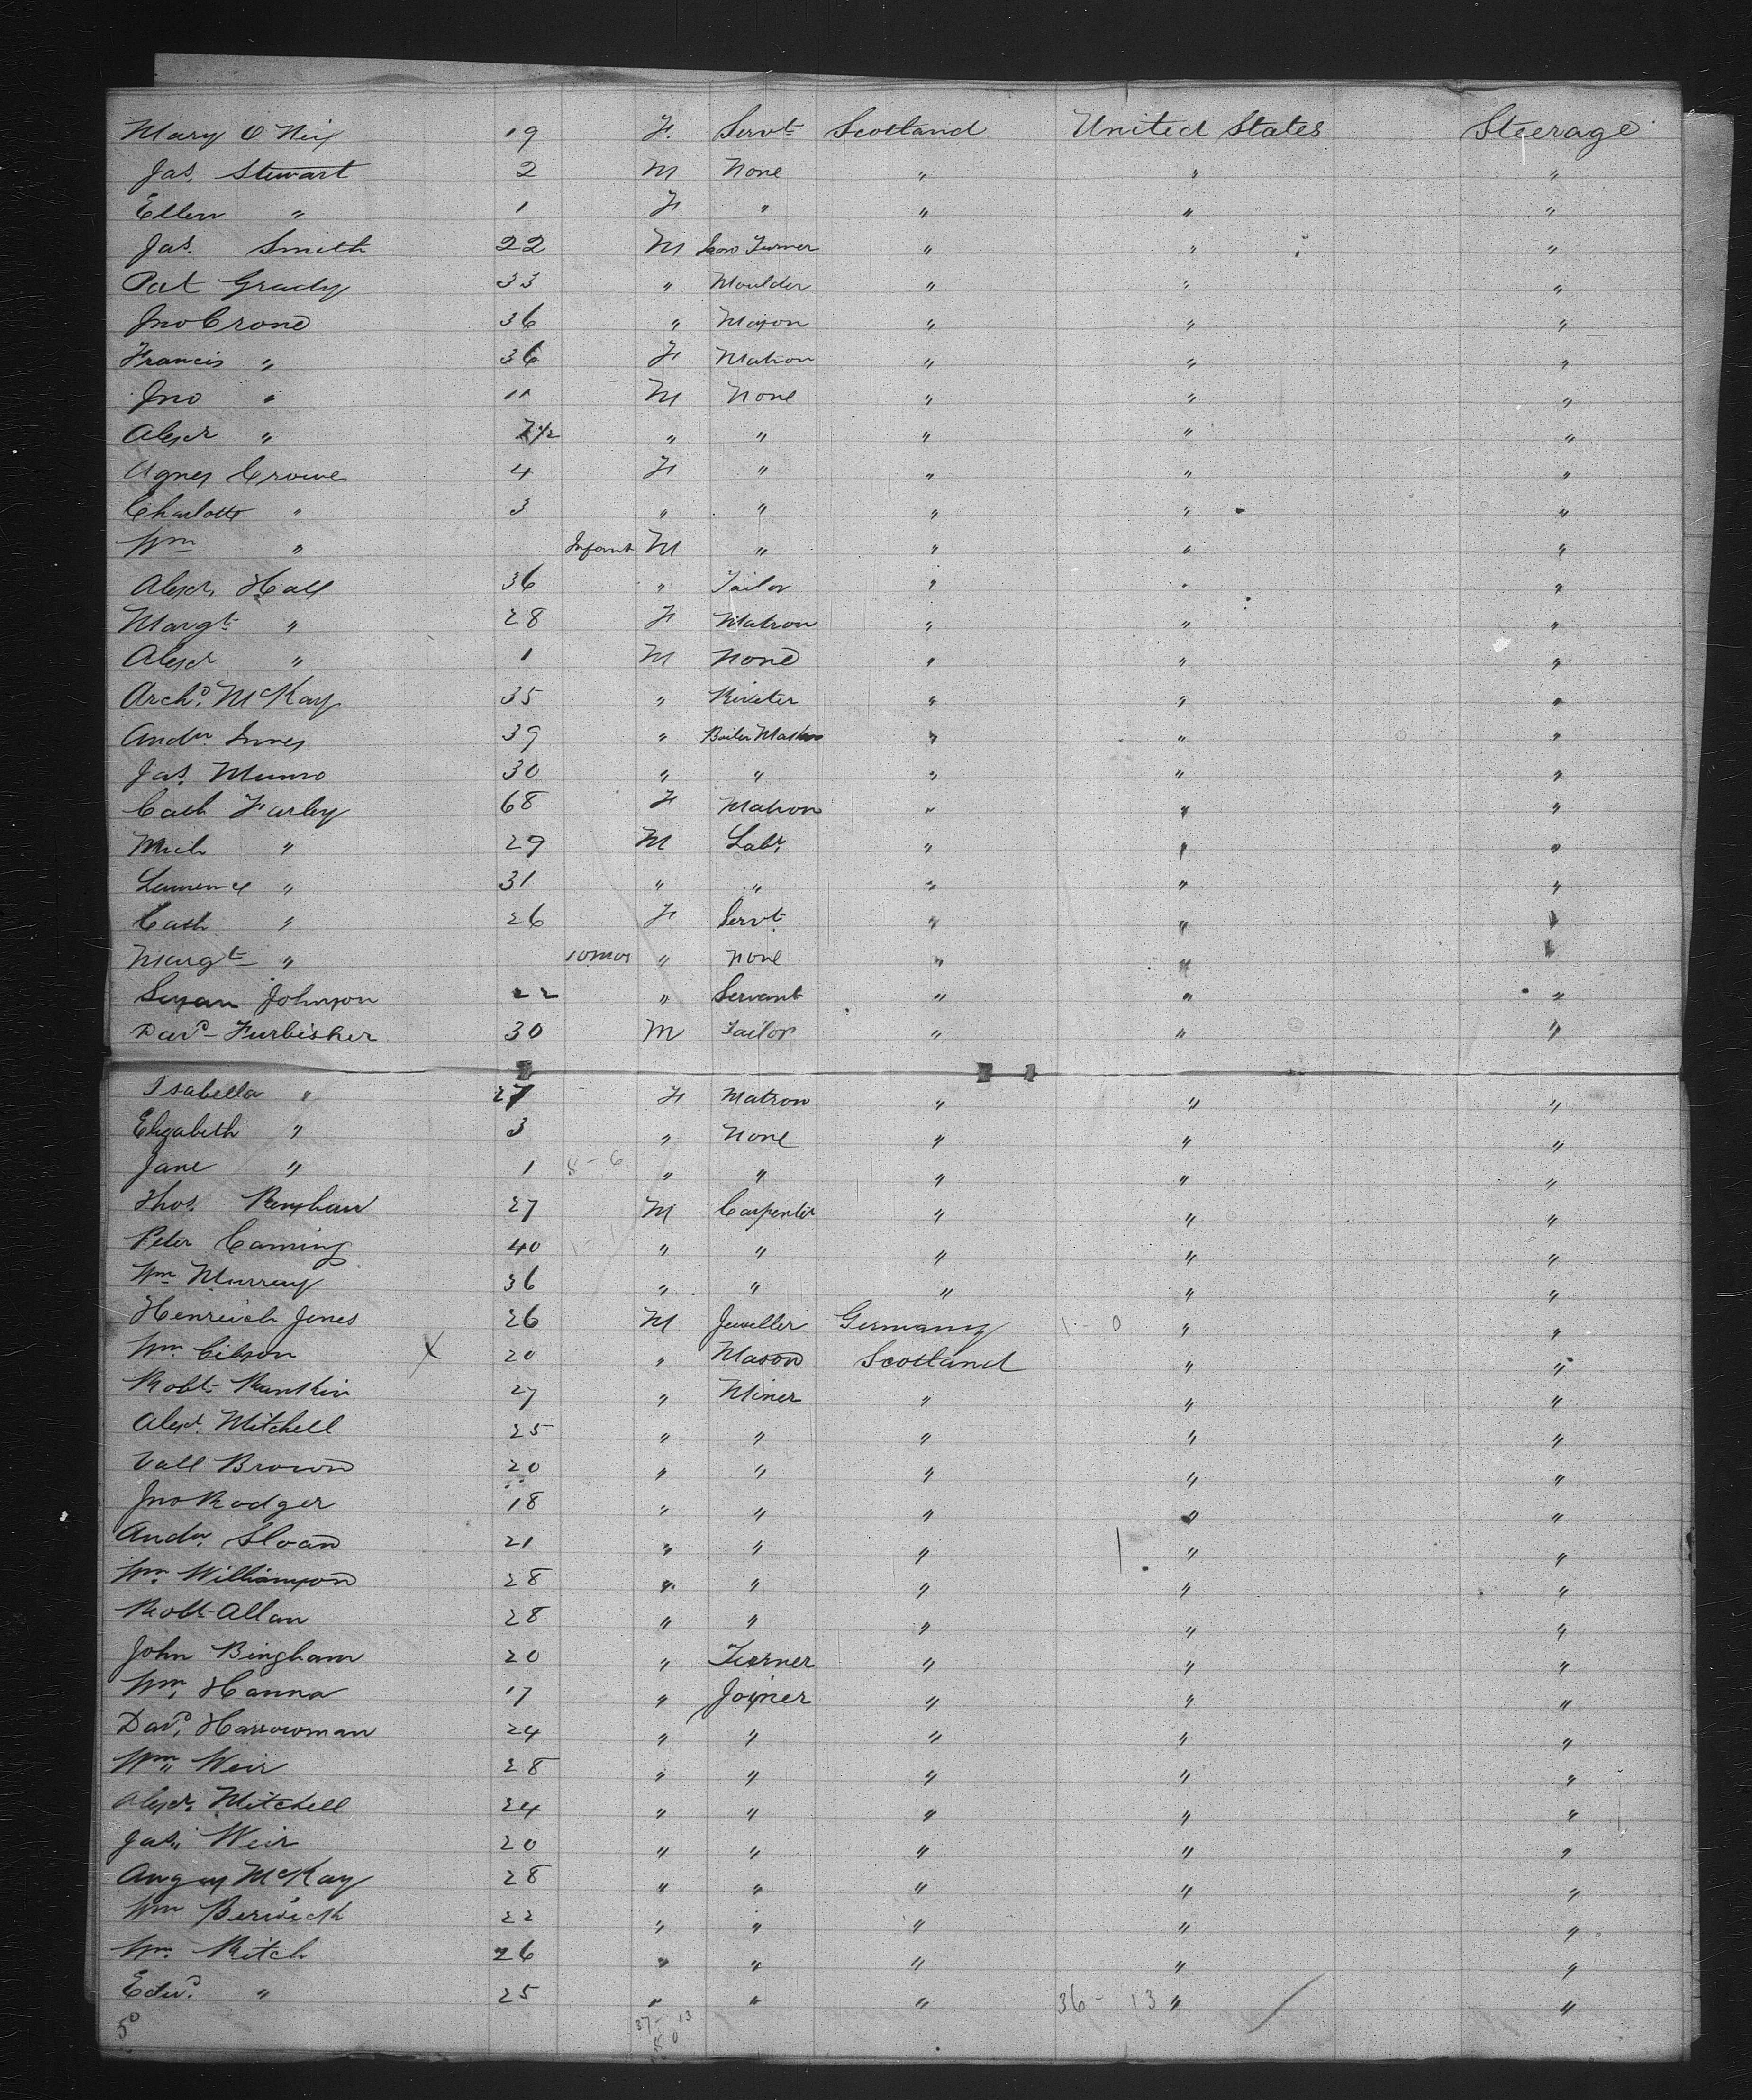 Mary O'Neil 19 F. Servt Scotland United States Steerage
Jas. Stewart 2 M None " " "
Ellen " 1 F " " " "
Jas. Smith 22 M Iron Turner " " "
Pat Grady 33 " Moulder " " "
Jno Crone 36 " Mason " " "
Francis " 36 F Matron " " "
Jno " 11 M None " " "
Alexr " 7 1/2 " " " " "
Agnes Crowe 4 F " " " "
Charlotte " 3 " " " " "
Wm " Infant M " " " "
Alexr. Hall 36 " Tailor " " "
Margt " 28 F Matron " " "
Alexr " 1 M None " " "
Archd. McKay 35 " Riveter " " "
Andw. Innes 39 " Boiler Maker " " "
Jas. Munro 30 " " " " "
Cath Farley 68 F Matron " " "
Mich " 29 M Labr. " " "
Lawrence " 31 " " " " "
Cath " 26 F Servt. " " "
Margt " 10 mos " None " " "
Susan Johnson 22 " Servant " " "
Davd Furbisher 30 M Tailor " " "
Isabella " 27 F Matron " " "
Elizabeth " 3 " None " " "
Jane " 1 8-6 " " " " "
Thos. Renshaw 27 M Carpenter " " "
Peter Caming 40 " " " " "
Wm Murray 36 " " " " "
Henreich Jenes 26 M Jeweller Germany 1-0 " "
Wm. Gibson X 20 " Mason Scotland " "
Robt Rankin 27 " Miner " " "
Alexr. Mitchell 25 " " " " "
Vall Brown 20 " " " " "
Jno Rodger 18 " " " " "
Andw. Sloan 21 " " " " "
Wm. Williamson 28 " " " " "
Robt Allan 28 " " " " "
John Bingham 20 " Turner " " "
Wm. Hanna 17 " Joiner " " "
Davd. Harrowman 24 " " " " "
Wm. Weir 28 " " " " "
Alexr. Mitchell 24 " " " " "
Jas. Weir 20 " " " " "
Angus McKay 28 " " " " "
Wm Berwick 22 " " " " "
Wm. Ritch 26 " " " " "
Edwd. " 25 " " " 36-13 " "
50 37-13
8 0